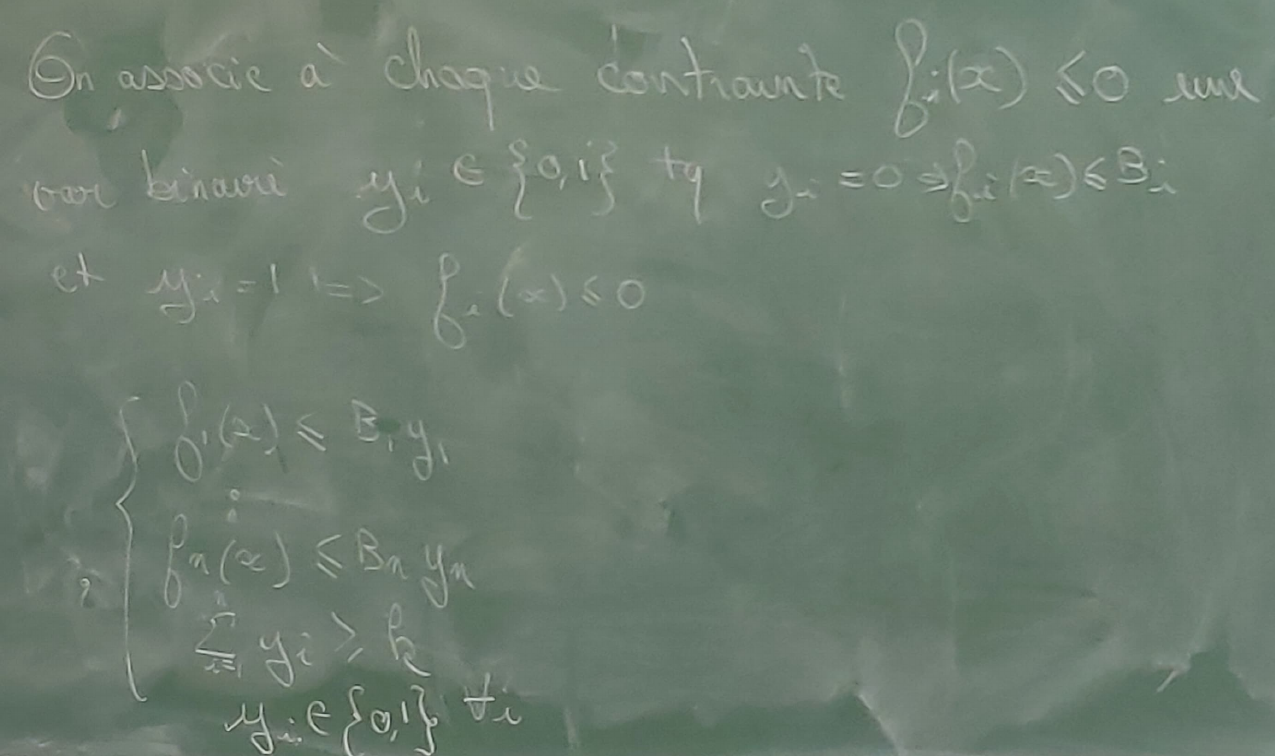 On associe à chaque contrainte fi(x) ≤ 0 une
var binaire yi ∈ {0,1} tq yi = 0 ⇒ fi(x) ≤ Bi
et yi = 1 => fi(x) ≤ 0
f1(x) ≤ B1 y1
⋮
fn(x) ≤ Bn yn
∑_{i=1}^{n} yi ≥ k
yi ∈ {0,1} ∀i